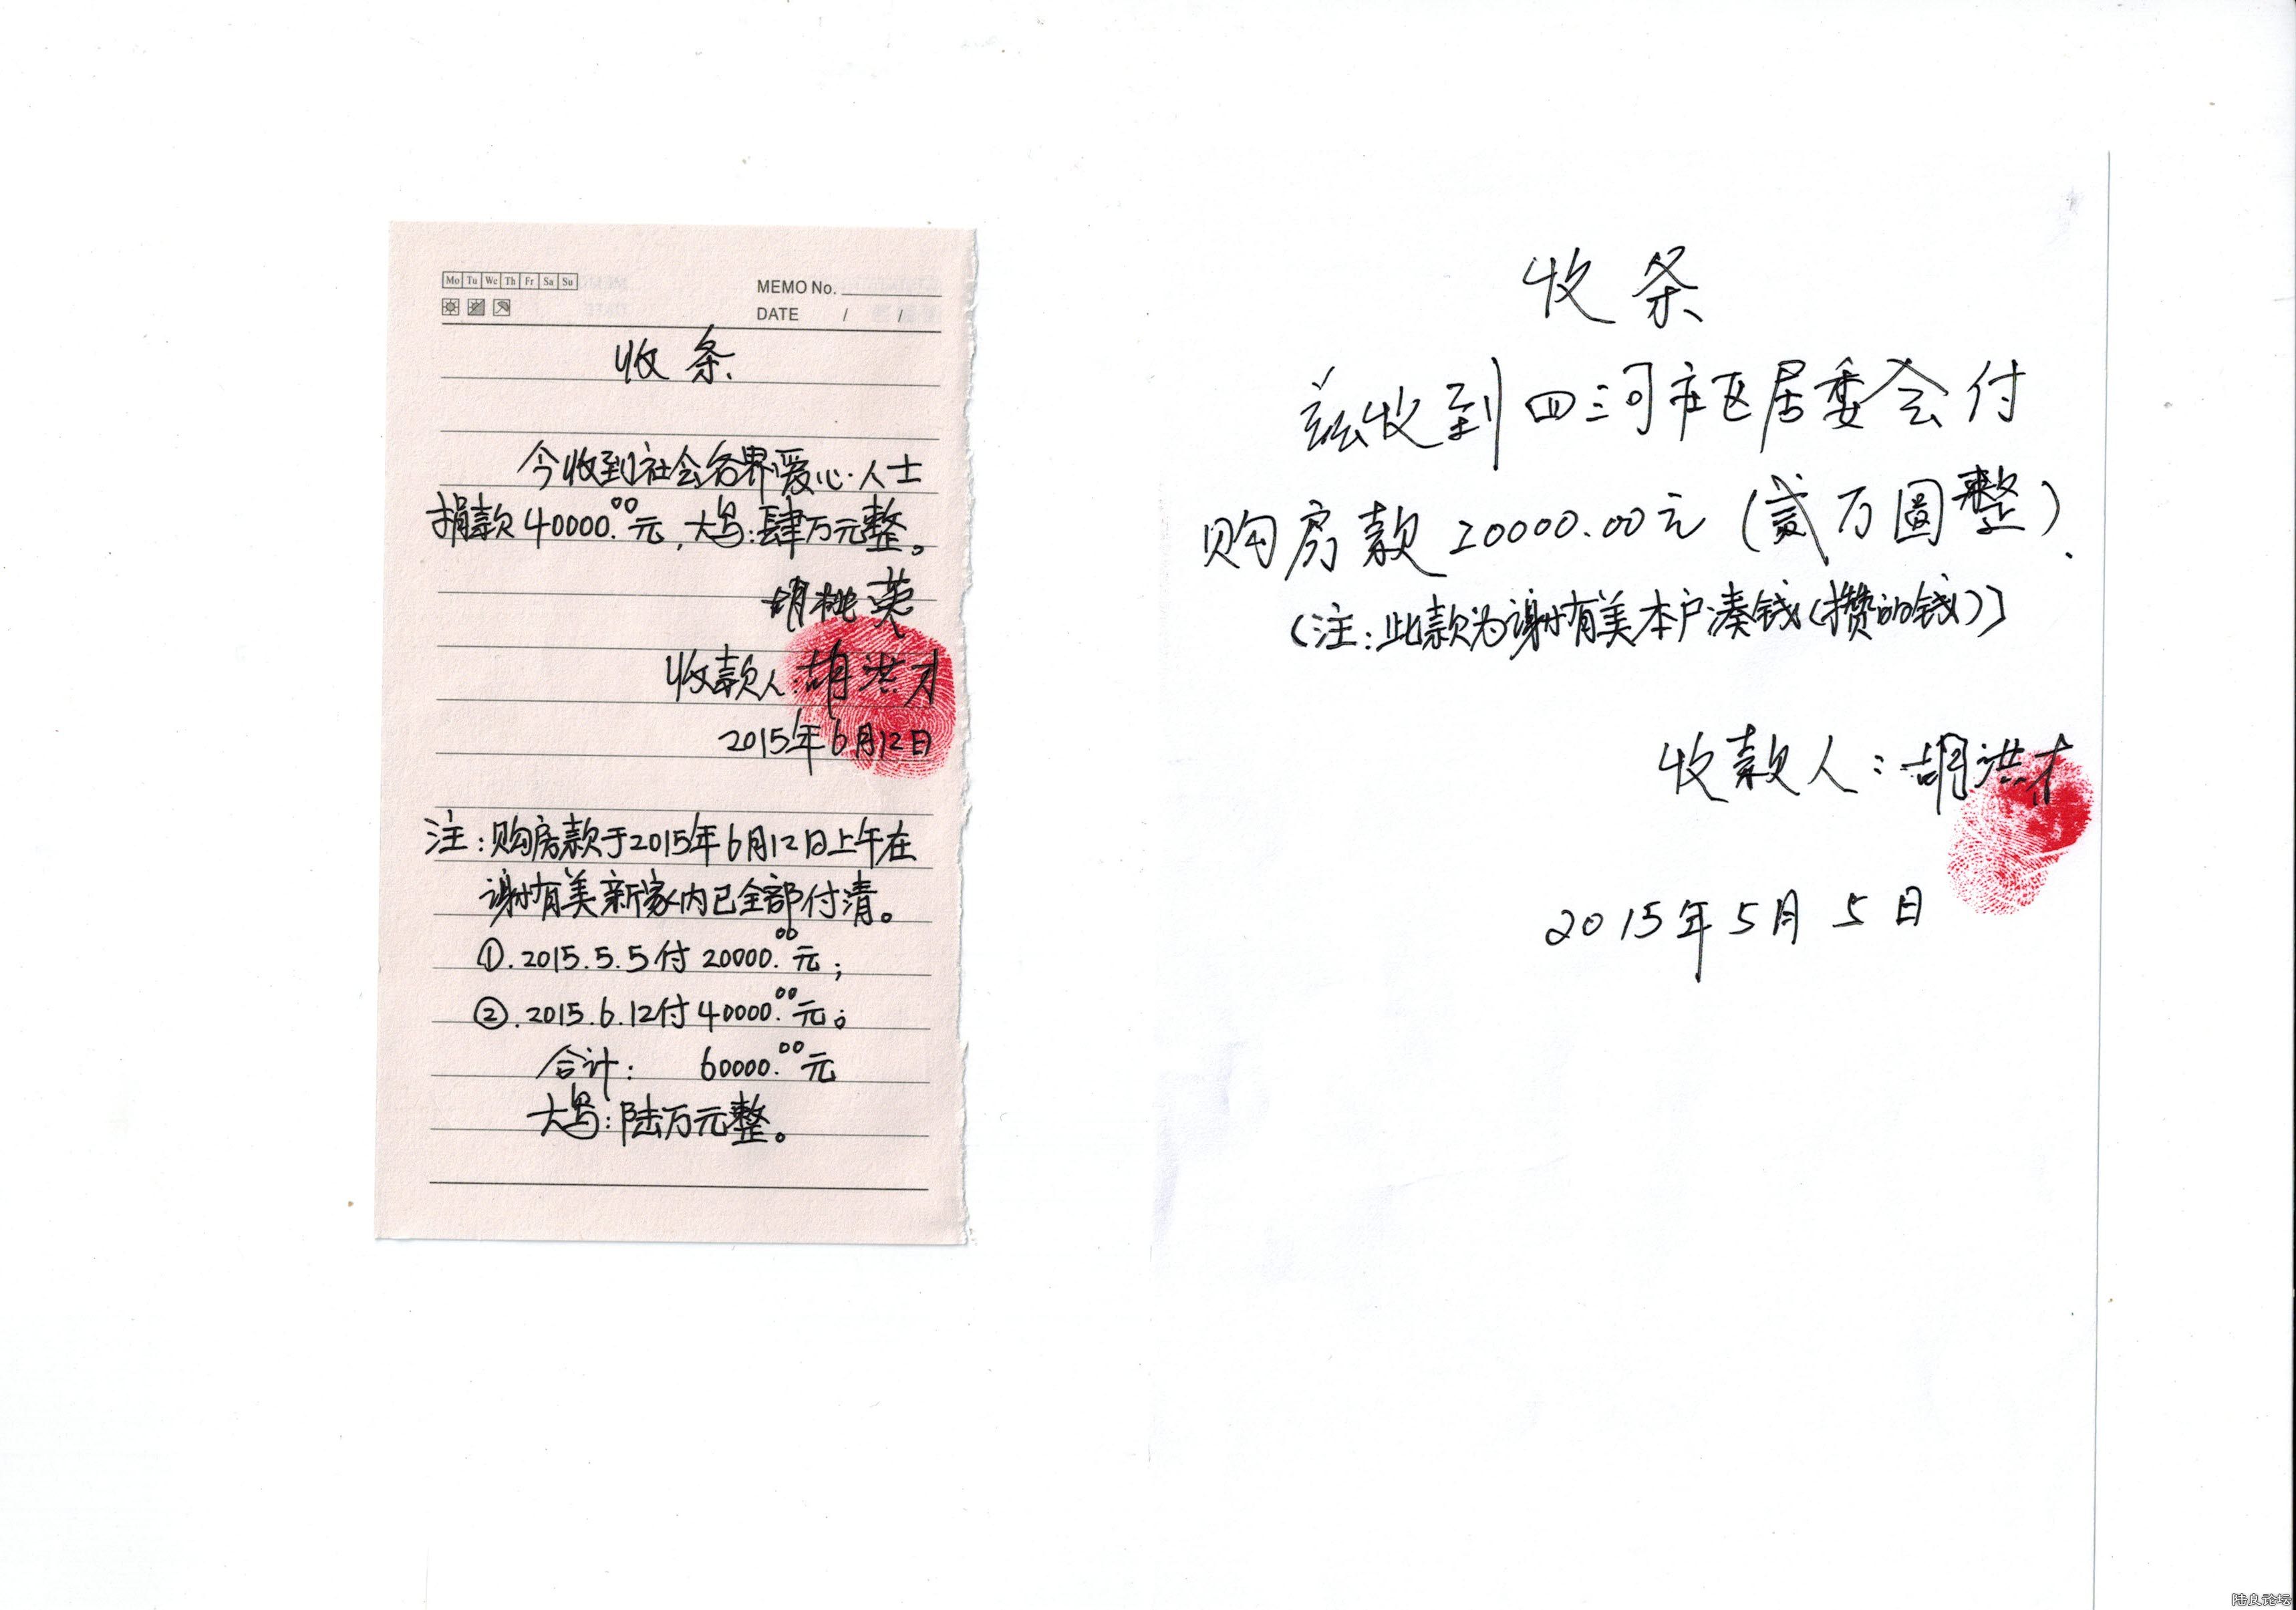 Mo Tu We Th Fr Sa Su
MEMO No.
DATE / /
收条
今收到社会各界爱心人士
捐款40000.00元,大写:肆万元整。
胡桃英
收款人:胡洪才
2015年6月12日
注:购房款于2015年6月12日上午在
谢有美新家内已全部付清。
①.2015.5.5付20000.00元;
②.2015.6.12付40000.00元。
合计: 60000.00元
大写:陆万元整。
收条
兹收到四河社区居委会付
购房款20000.00元(贰万圆整).
(注:此款为谢有美本户凑钱(攒的钱))
收款人:胡洪才
2015年5月5日
陆良论坛